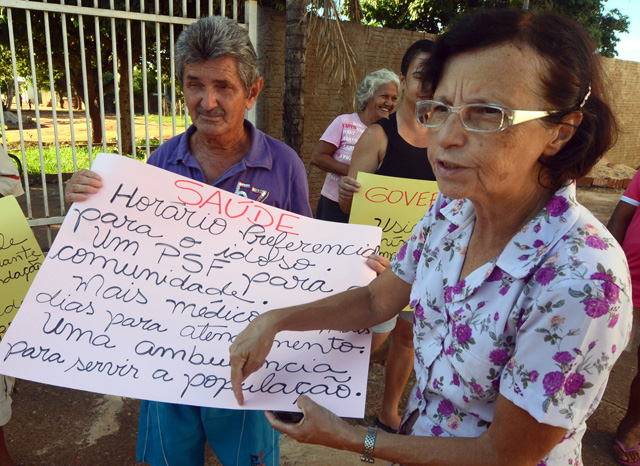 SAÚDE
Horário Preferencial
para o idoso.
Um PSF para a
comunidade.
Mais médico mais
dias para atendimento.
Uma ambulância
para servir a população.
GOVER
Usi